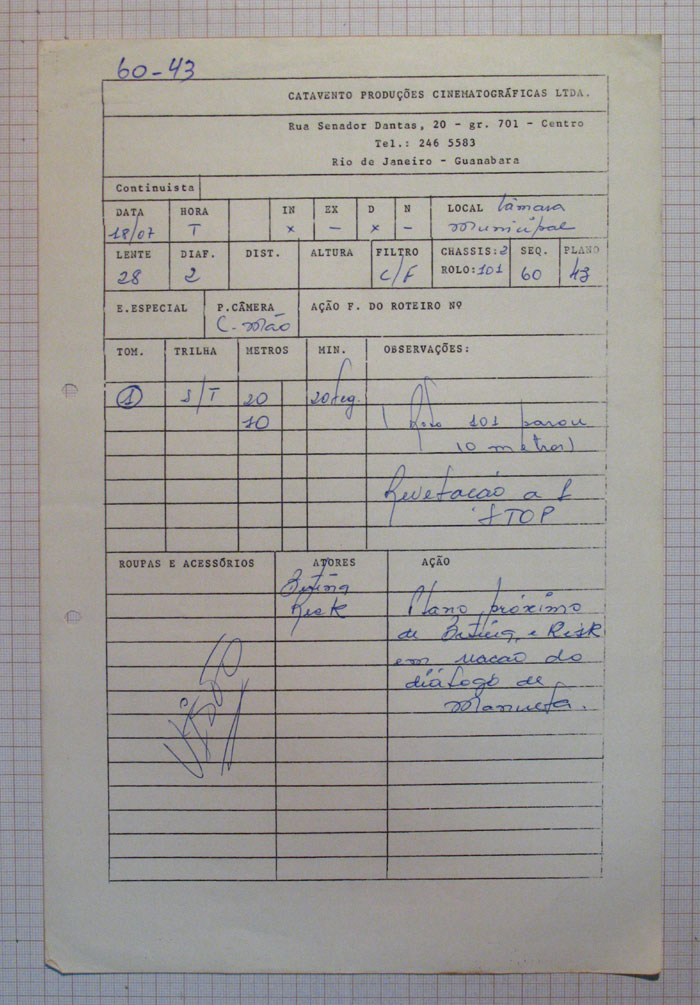 60-43
CATAVENTO PRODUÇÕES CINEMATOGRÁFICAS LTDA.
Rua Senador Dantas, 20 - gr. 701 - Centro
Tel.: 246 5583
Rio de Janeiro - Guanabara
Continuista
DATA HORA IN EX D N LOCAL Câmara
18/07 T x - x - Municipal
LENTE DIAF. DIST. ALTURA FILTRO CHASSIS: 2 SEQ. PLANO
28 2 C/F ROLO: 101 60 43
E.ESPECIAL P.CÂMERA AÇÃO F. DO ROTEIRO Nº
C. Mão
TOM. TRILHA METROS MIN. OBSERVAÇÕES:
1 S/T 20 20 seg.
10 ( Rolo 101 parou
10 metros)
Revelação a 1
STOP
ROUPAS E ACESSÓRIOS ATORES AÇÃO
Risk Plano próximo
de e Risk
em do
diálogo de